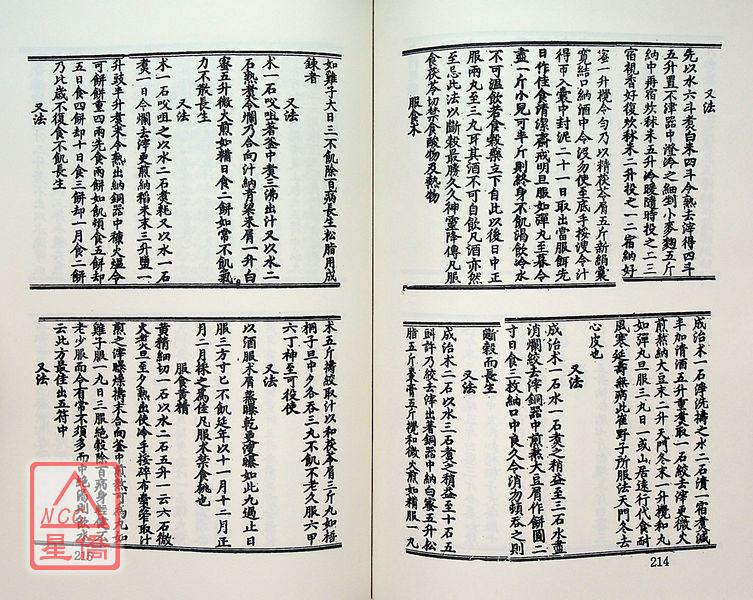 又法
先以水六斗煑白米四斗令熟去滓得四斗
五升置不津器中澄冷之細剉小麥麴五斤
納中再宿炊秫米五升冷暖隨時投之一二三
宿視香好復炊秫米二升投之一二宿納好
蜜一升攪令勻乃以精茯苓屑五斤新絹囊
寬結口納酒中令沒勿使至底手挼溲令汁
得帀入囊中封泥二十一日取出當服餌先
日作佳食清潔齋戒明旦服如彈丸至暮令
盡一斤小兒可半斤則終身不飢渴飲冷水
不可溫飲若食穀藥立下自此以後日中正
服兩丸至三九耳其酒不可自飲凡酒亦然
至忌此法以斷穀最勝久久神靈降傳凡服
食茯苓切禁食酸物及熱物
服食朮
成治朮一石淨洗擣之水二石漬一宿煑減
半加清酒五升重煑取一石絞去滓更微火
煎熬納大豆末二升天門冬末一升攪和丸
如彈丸旦服三丸日一或山居遠行代食耐
風寒延壽無病此崔野子所服法天門冬去
心皮也
又法
成治朮一石水一石煑之稍益至三石水盡
消爛絞去滓銅器中煎熬大豆屑作餅圓二
寸日食三枚納口中良久令消勿頓吞之則
斷穀而長生
又法
成治朮二石以水三石煑之稍益至十石五
斛許乃絞去滓出著銅器中納白蜜五升松
脂五斤棗膏五斤攪和微火煎如糒服一丸
214
如雞子大日三不飢除百病長生松脂用成
鍊者
又法
朮一石㕮咀著釜中煑三沸出汁又以水二
石熟煑令爛乃合向汁納青粱米屑一升白
蜜五升微火煎如糒日食二餅如常不飢氣
力不散長生
又法
朮一石㕮咀之以水二石煑耗又以水一石
煑一日令爛去滓更煎納稻米末三升鹽一
升豉半升煑米令熟出納銅器中糠火熅令
可餅餅重四兩先食兩餅如飢頓食五餅却
五日食四餅却十日食三餅却一月食二餅
乃比歲不復食不飢長生
又法
朮五斤擣絞取汁以和茯苓屑三斤丸如梧
桐子旦中夕各吞三丸不飢不老久服六甲
六丁神至可役使
又法
以酒服朮屑蒸曝乾更漫曝如此九過止日
服三方寸匕不飢延年以十一月十二月正
月二月採之爲佳凡服朮禁食桃也
服食黃精
黃精細切一石以水二石五升一云六石微
火煑旦至夕熟出使冷手挼碎布囊榨取汁
煎之滓曝燥擣末合向釜中煎熬可爲丸如
雞子服一丸日三服絕穀除百病身輕健不
老少服而令有常不須多而中絕渴則飲水
云此方最佳出五符中
又法
215
NCC
星僑